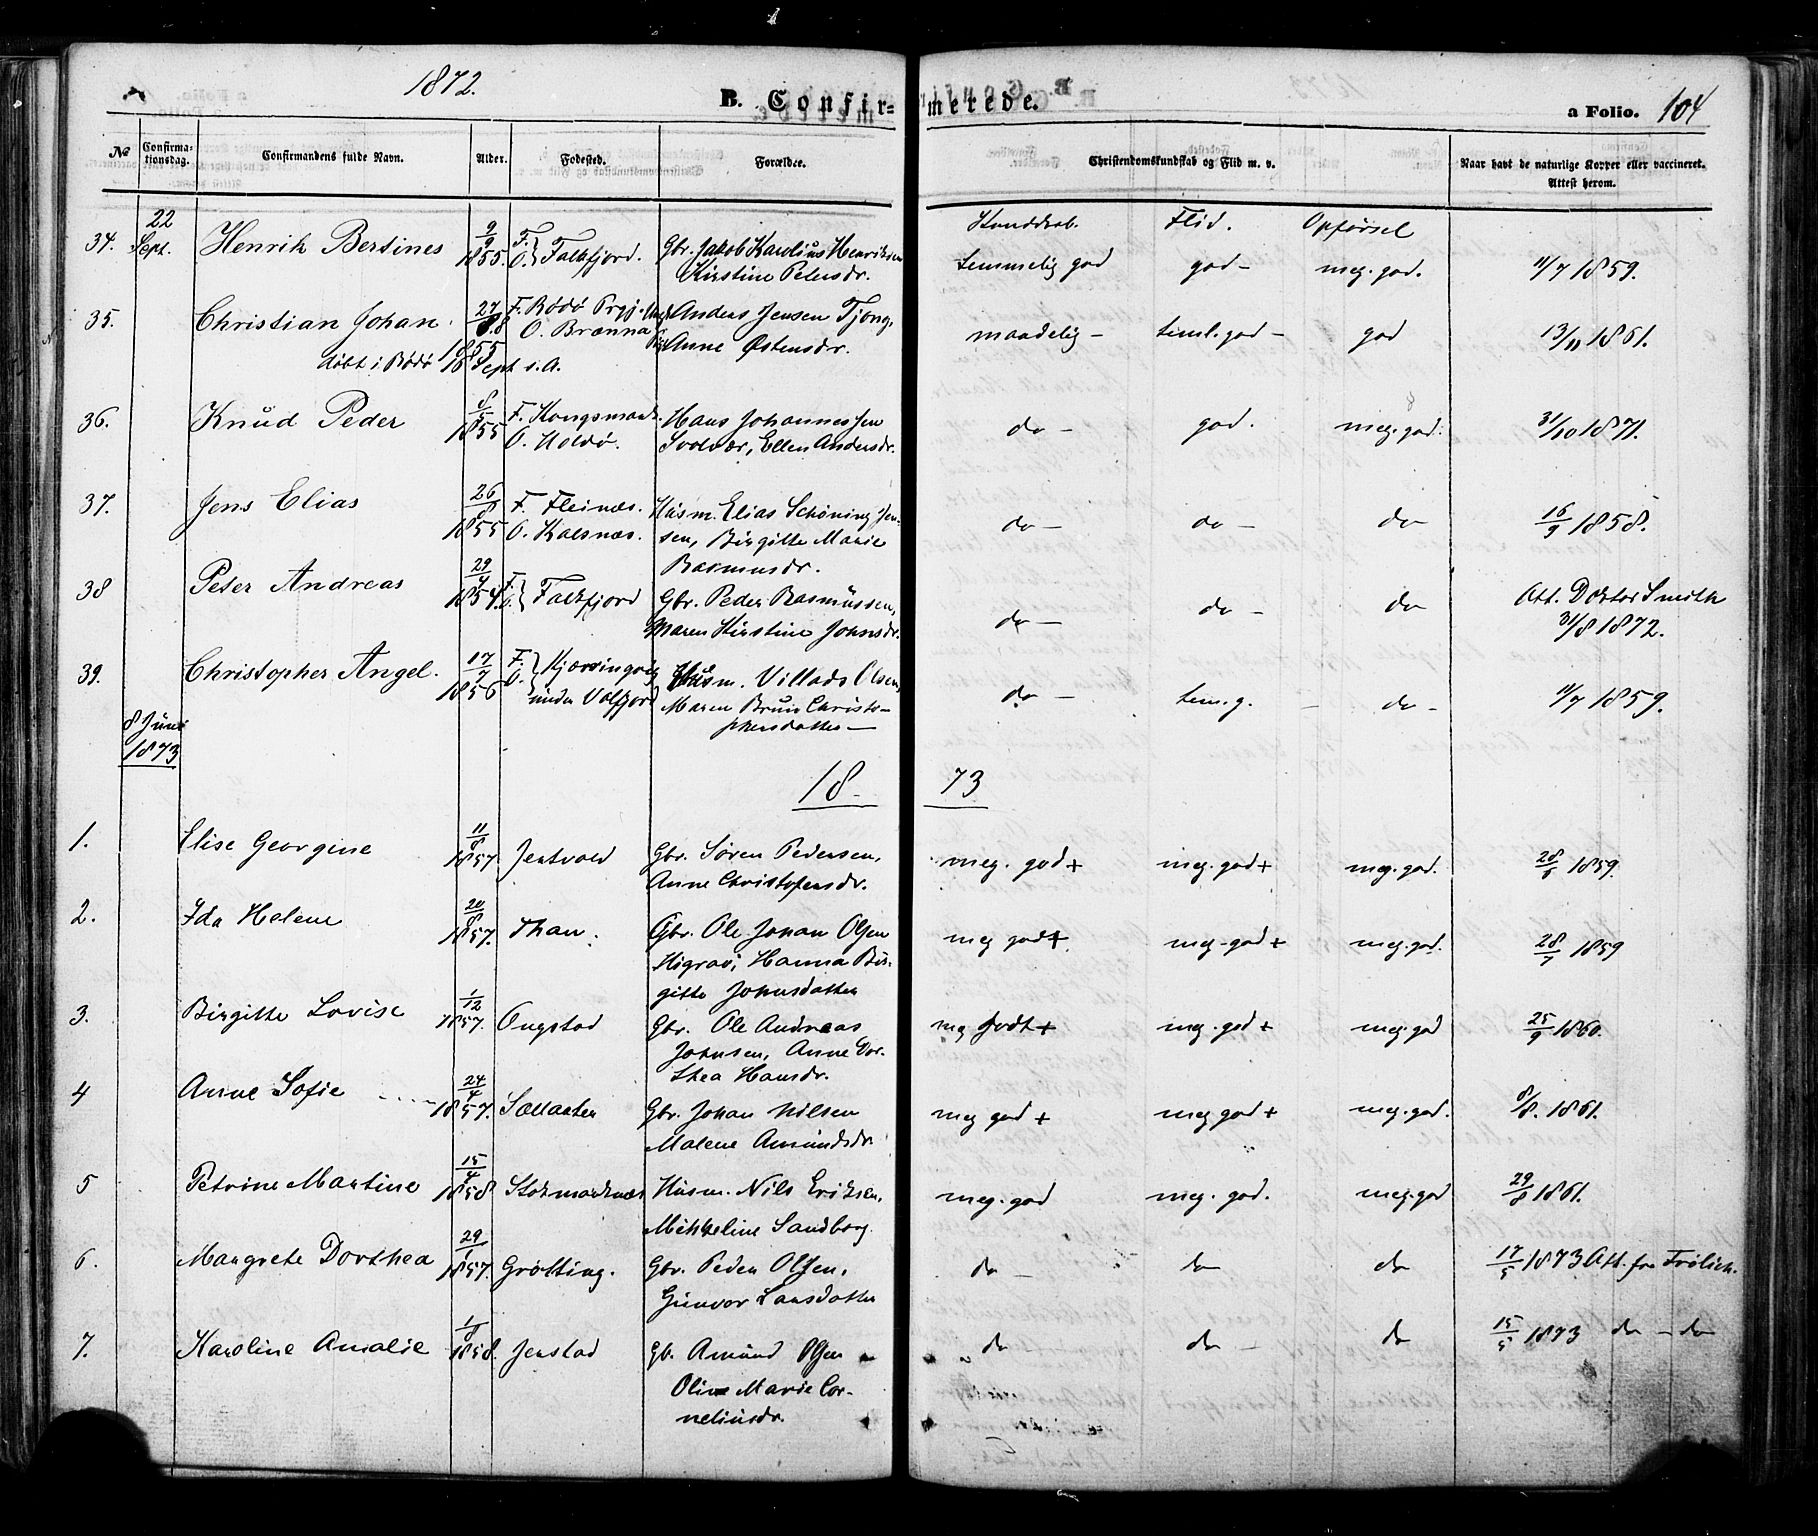 1872.
B. Confir-
merede.
a Folio. 104
No
Confirma-
tionsdag.
Confirmandens fulde Navn.
Alder.
Fødested.
Forældre.
Christendomskundskab og Flid m. v.
Naar havt de naturlige Kopper eller vaccineret.
Attest herom.
Kundskab. Flid. Opførsel
34. 22 Sept. Henrik Bertines 9/9 1855. F. O. Falkfjord. Gbr. Jakob Karolius Henriksen
Kirstine Petersdr. temmelig god god - meg. god. 11/7 1859.
35. Christian Johan. 27/8 1855 F. Rødø Prgj. Anders Jensen Tjong,
O. Brænna Anne Østensdr. maadelig - teml. god - god 13/11 1861.
døbt i Rødø 16 Sept s. A.
36. Knud Peder 8/5 1855 F. Kongsmark. Hans Johannesen
O. Holdø. Svolvær, Ellen Andersdr. do - god. meg. god. 31/10 1871.
37. Jens Elias 26/8 1855 F. Fleinæs. Husm. Elias Schøning Jen-
O. Kalsnæs. sen, Birgitte Marie
Rasmusdr. do - do - do 16/9 1858.
38 Peter Andreas 29/4 1854. F. O. Falkfjord Gbr. Peder Rasmussen,
Maren Kirstine Johnsdr. do - do - do Att. Doktor Smith
31/8 1872.
39. Christopher Angel. 17/7 1856 F. O. Kjærringvig Husm. Villads Olsen,
under Valfjord Maren Bruun Christo-
phersdatter - do - tem. g. - do - 11/7 1859.
8 Juni
1873
18 73
1. Elise Georgine 11/8 1857. Jentvold Gbr. Søren Pedersen,
Anne Christofersdr. meg. god + meg. god + meg. god. 28/5 1859.
2. Ida Helene 20/8 1857. Than. Gbr. Ole Johan Olsen
Higrav, Hanna Bir-
gitte Johnsdatter meg god + meg. god + meg. god. 28/5 1859
3. Birgitte Lovise 1/12 1857. Ongstad Gbr. Ole Andreas
Johnsen, Anne Dor-
thea Hansdr. meg godt + meg. god + meg. god 25/9 1860.
4 Anne Sofie 24/4 1857. Sællæter Gbr. Johan Nilsen
Malene Amundsdr. meg god + meg god + meg. god. 8/8. 1861.
5 Petrine Martine 15/4 1858 Stokmarknæs Husm. Nils Eriksen,
Mekkeline Sandborg. meg. god meg. god. meg. god 29/8 1861.
6. Margrete Dorthea 29/1 1857. Grøtting. Gbr. Peder Olsen,
Gunvor Larsdatter do - do do 17/5 1873 Att. fra Frølich.
7. Karoline Amalie 1/8 1858. Jenstad Gb. Amund Olsen
Oline Marie Cor-
neliusdr. do do - do 15/5 1873 do - do